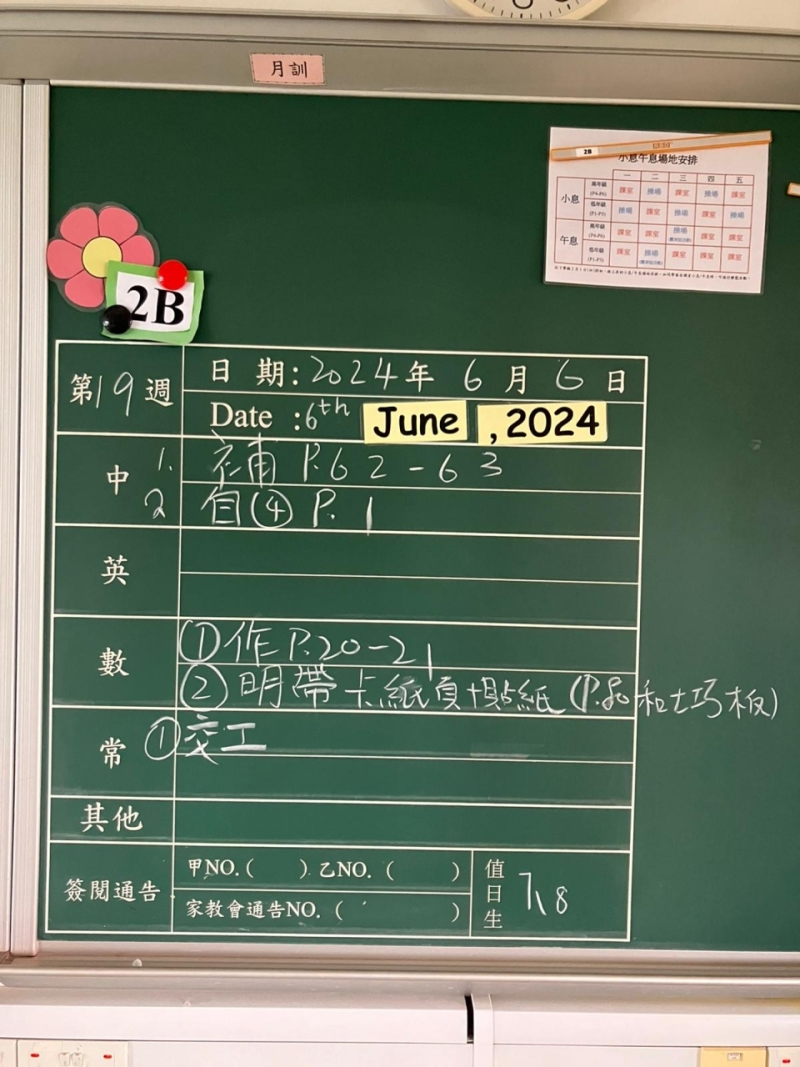 月訓
2B
小息午息場地安排
一 二 三 四 五
小息 高年級 (P4-P6) 課室 操場 課室 操場 課室
低年級 (P1-P3) 操場 課室 操場 課室 操場
午息 高年級 (P4-P6) 課室 課室 操場 課室 課室
低年級 (P1-P3) 課室 操場 課室 課室 課室
2B
第19週 日期:2024年6月6日
Date :6th June ,2024
中 1. 補 P.62-63
2 自④ P.1
英
數 ①作 P.20-21
②明帶卡紙頁+貼紙(P. 和七巧板)
常 ①交工
其他
簽閱通告 甲NO.( ) 乙NO.( )
家教會通告NO.( )
值日生 7、8